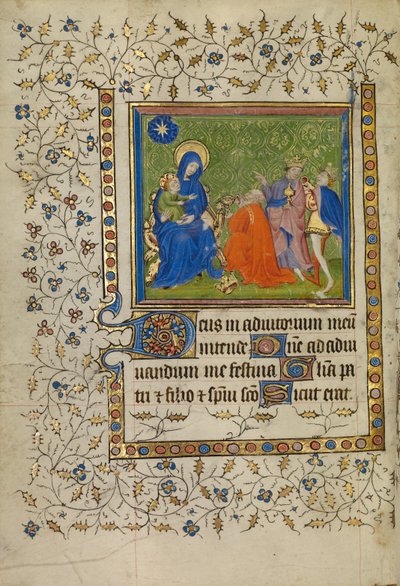 Deus in adiutorium meũ
intende Dñe ad adiu
uandum me festina Gl̃ia pa
tri ⁊ filio ⁊ sp̃ui sc̃o Sicut erat